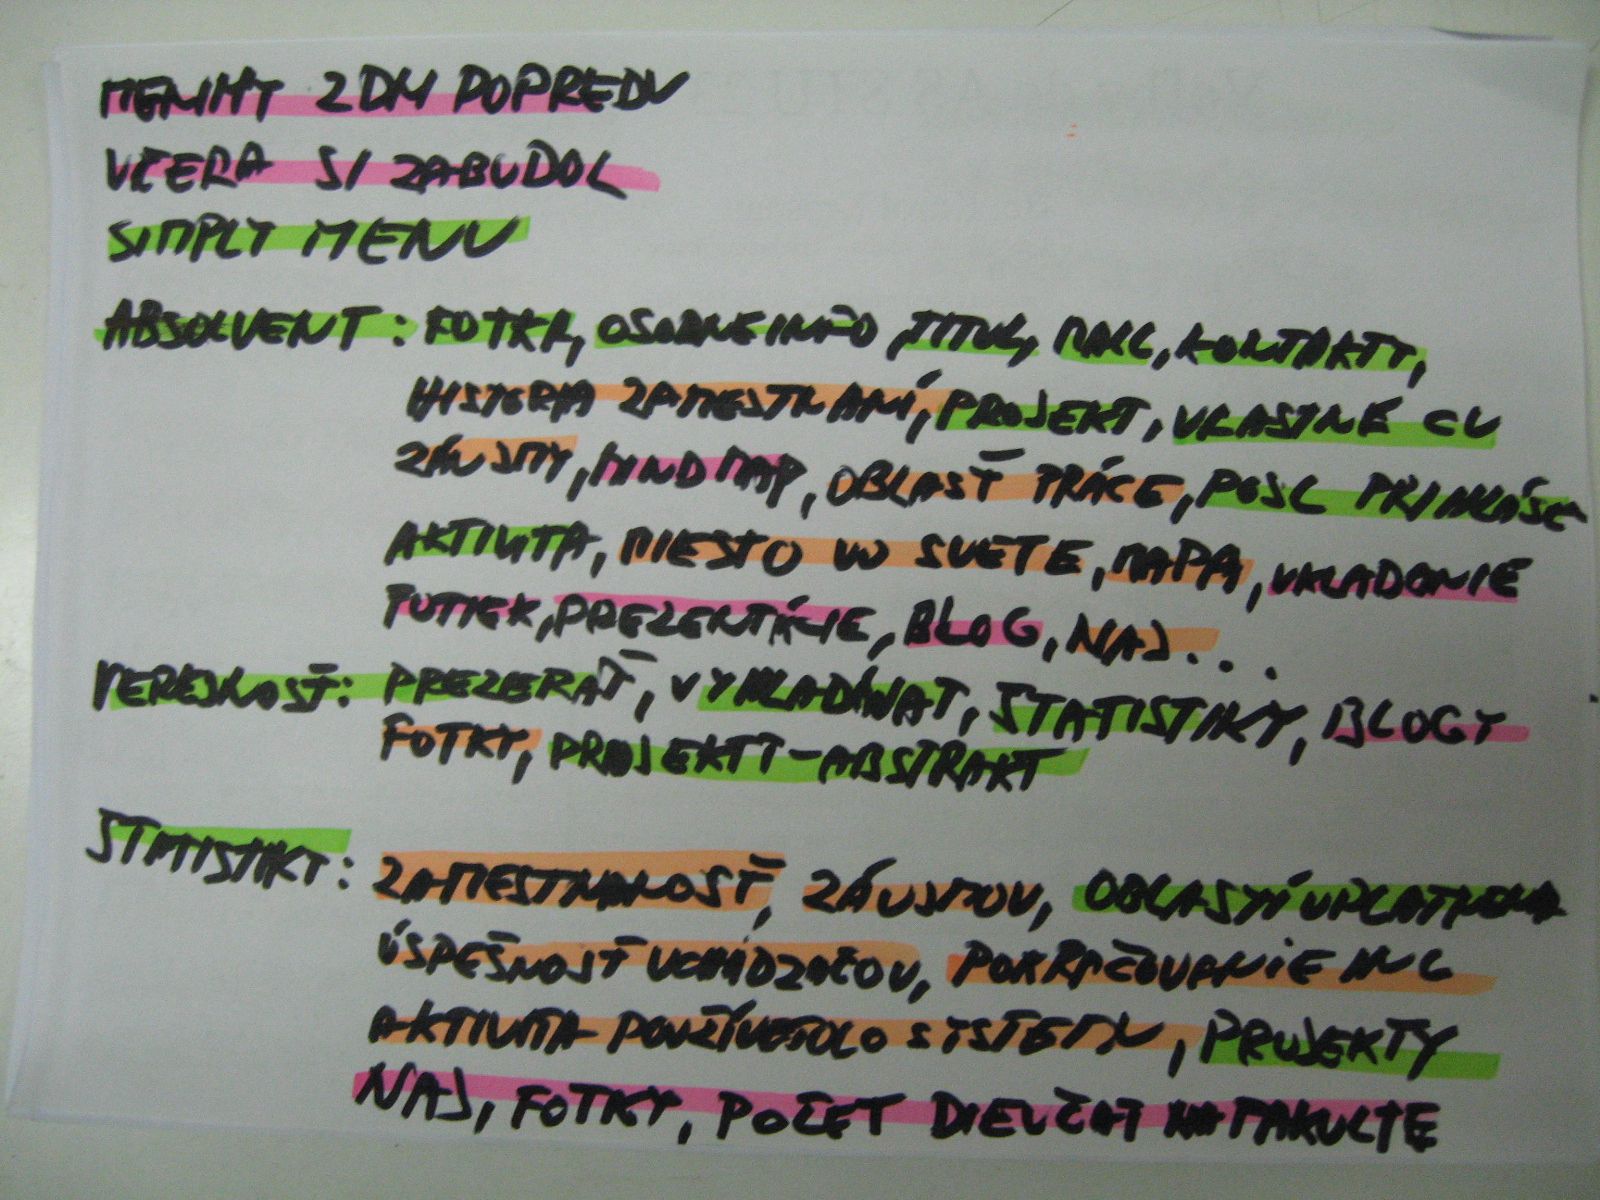 MEMHY 2 DNI POPREDU
VČERA SI ZABUDOL
SIMPLY MENU
ABSOLVENT: FOTKA, OSOBNE INFO, TITUL, MAIL, KONTAKTY,
HISTORIA ZAMESTNANÍ, PROJEKT, VLASTNÉ CV
ZÁUJMY, MIND MAP, OBLASŤ PRÁCE, POSL PRIHLÁSE
AKTIVITA, MIESTO VO SVETE, MAPA, VKLADANIE
FOTIEK, PREZENTÁCIE, BLOG, NAJ...
VEREJNOSŤ: PREZERAŤ, VYHLADÁVAT, STATISTIKY, BLOGY
FOTKY, PROJEKTY-ABSTRAKT
STATISTIKY:
ZAMESTNANOSŤ, ZÁUJMOV, OBLASTÍ UPLATNENIA
ÚSPEŠNOSŤ UCHÁDZAČOV, POKRAČOVANIE
AKTIVITA POUŽÍVATEĽO SYSTEMU, PROJEKTY
NAJ, FOTKY, POČET DIEVČAT NA FAKULTE